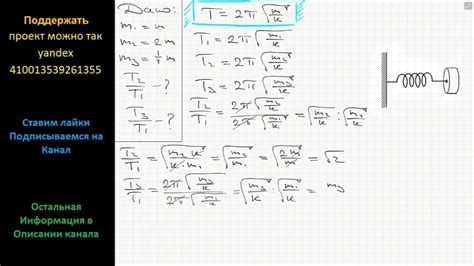 Поддержать
проект можно так
yandex
410013539261355
Ставим лайки
Подписываемся на
Канал
Остальная
Информация в
Описании канала
Дано:
m₁ = m
m₂ = 2m
T₂/T₁ - ?
T₃/T₁ - ?
T = 2π√(m/k)
T₁ = 2π√(m₁/k)
T₂ = 2π√(m₂/k)
T₃ = 2π√(m₃/k)
T₂/T₁ = 2π√(m₂/k) / 2π√(m₁/k) = √(m₂/k) : √(m₁/k)
T₂/T₁ = √(m₂ k / k m₁) = √(m₂/m₁) = √(2m/m) = √2
T₃/T₁ = 2π√(m₃/k) / 2π√(m₁/k) = √(m₃/k) : √(m₁/k) = m₃